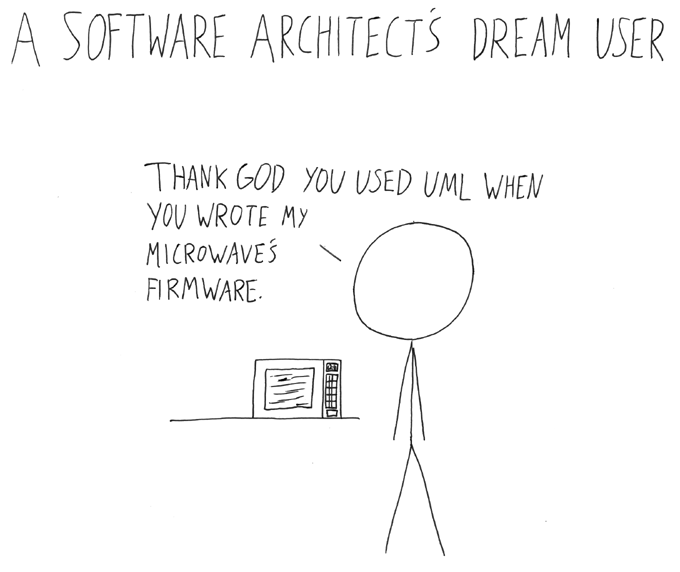 A SOFTWARE ARCHITECT'S DREAM USER
THANK GOD YOU USED UML WHEN
YOU WROTE MY
MICROWAVE'S
FIRMWARE.